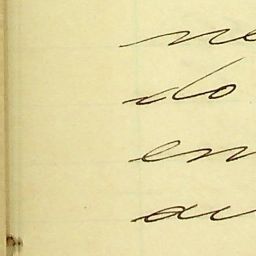 ne
do
en
au